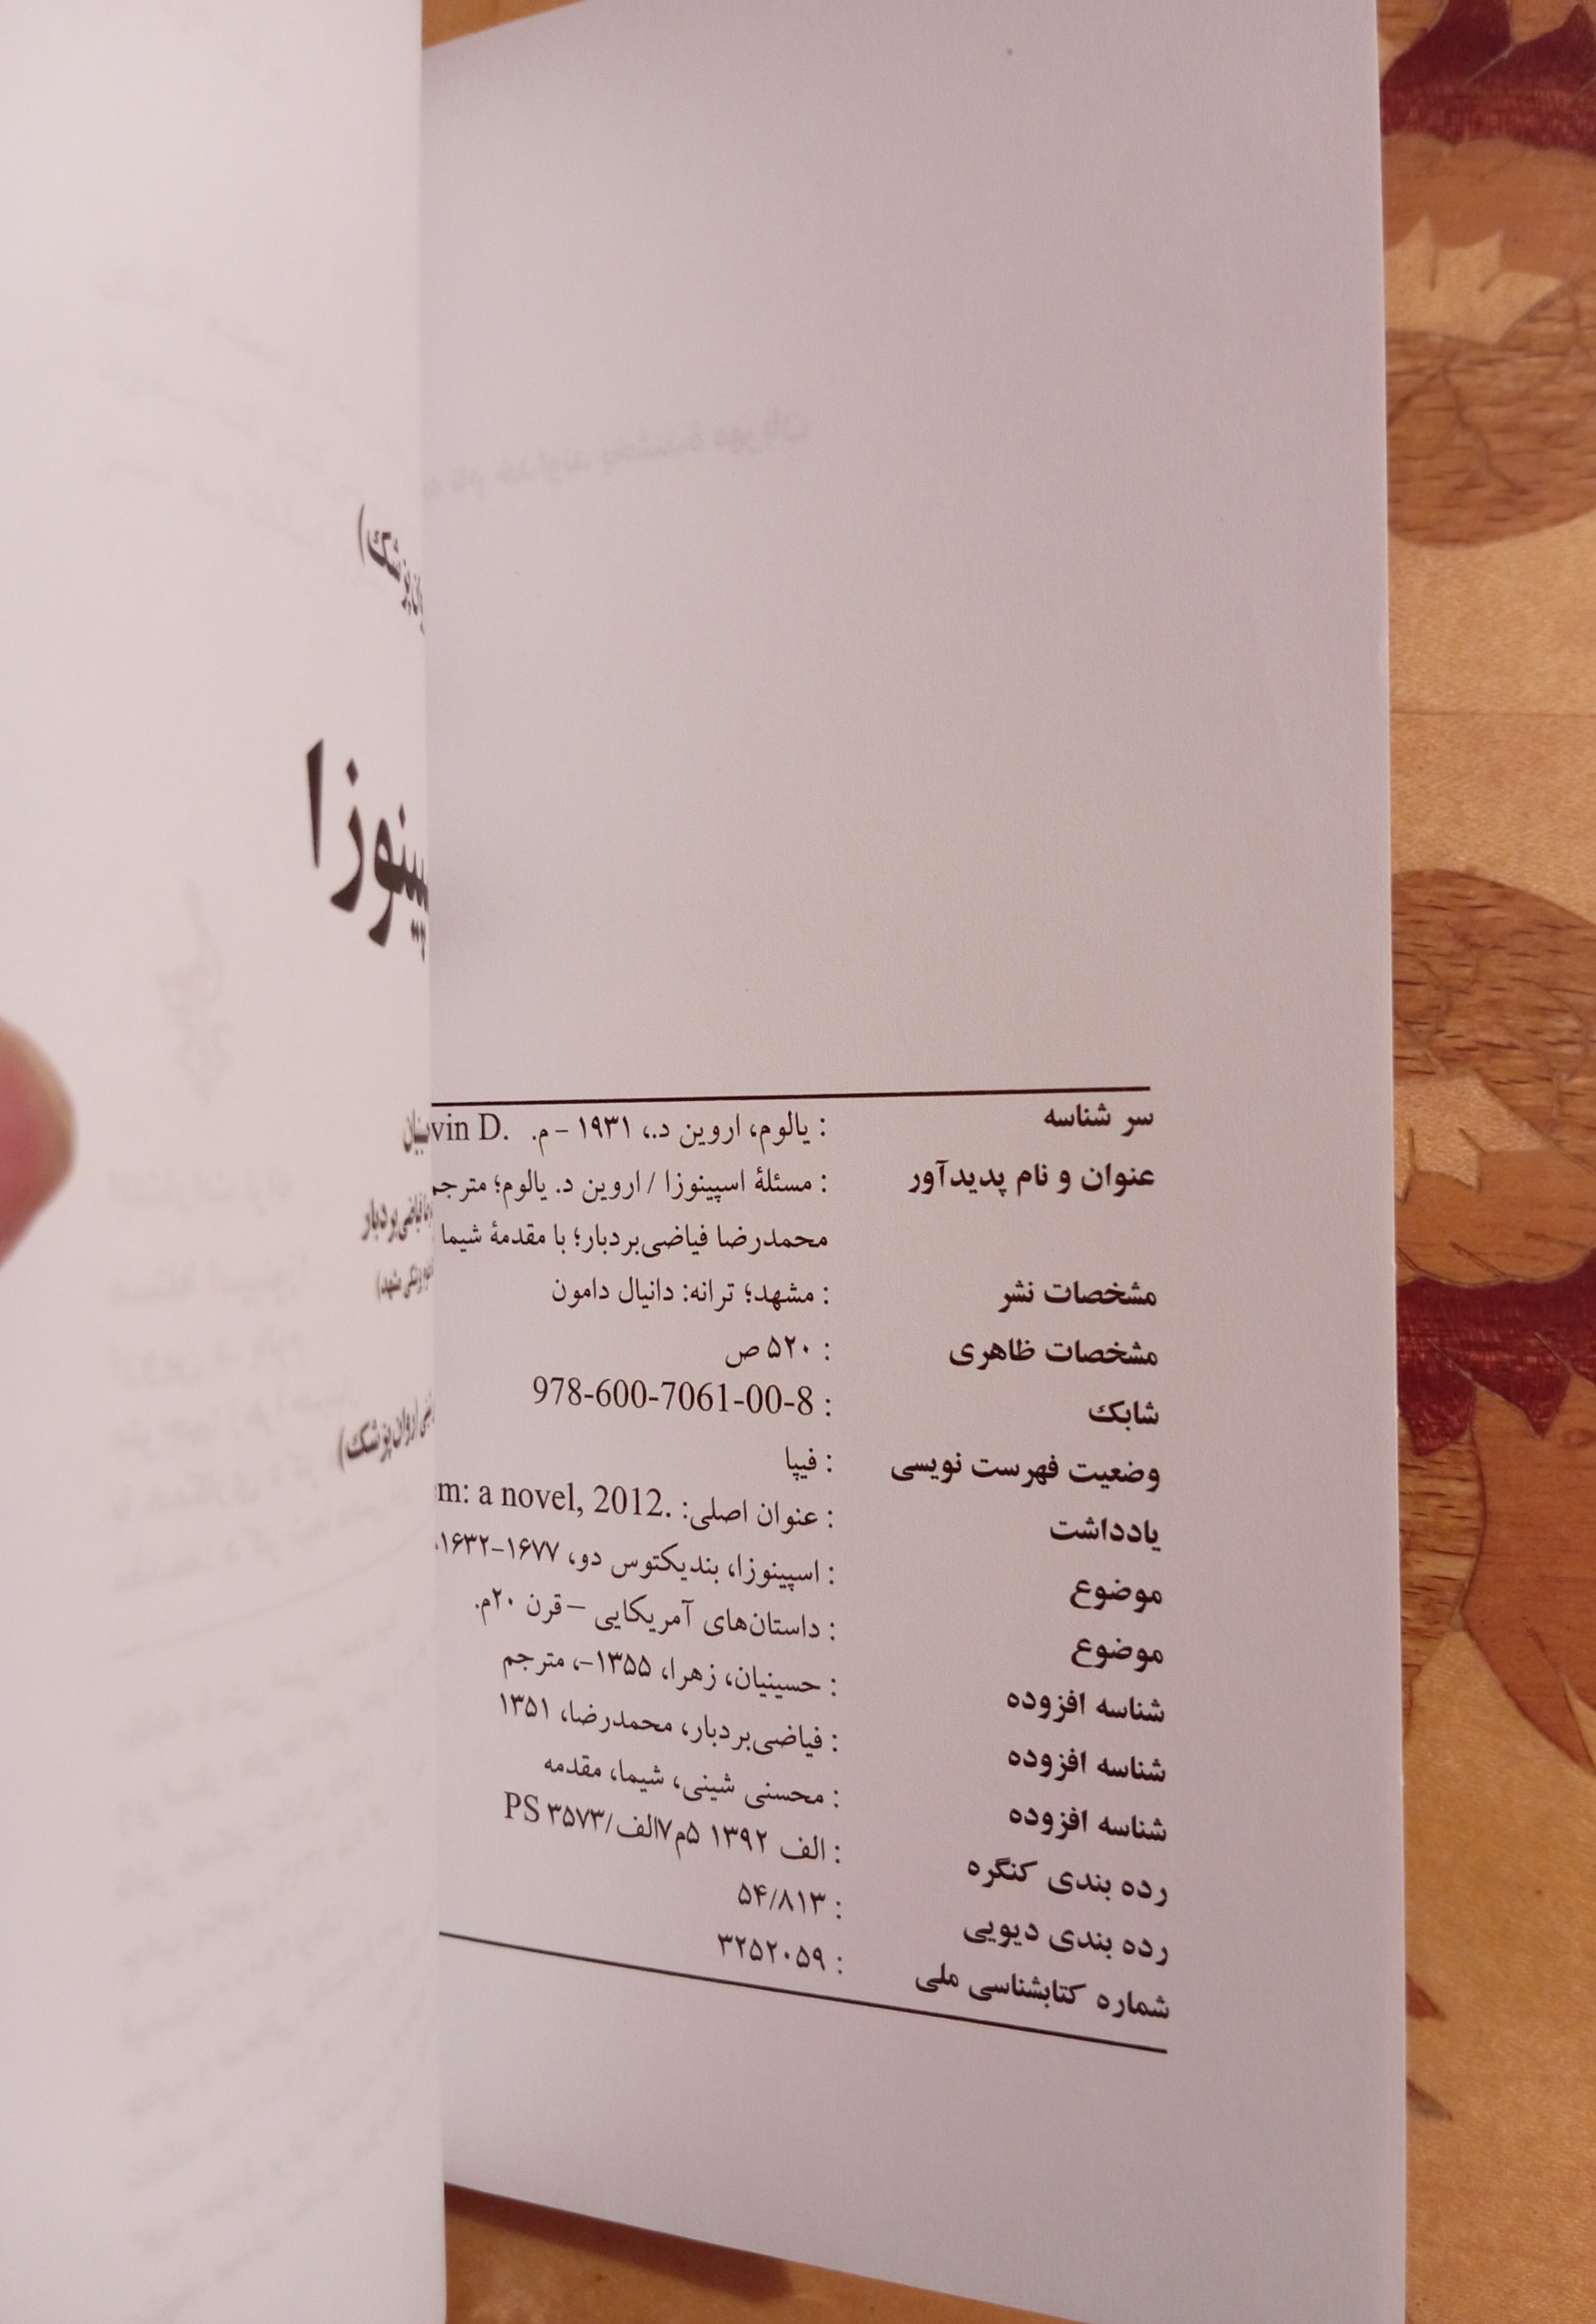 سر شناسه : یالوم، اروین د.، ۱۹۳۱ – م. vin D.
عنوان و نام پدیدآور : مسئلهٔ اسپینوزا / اروین د. یالوم؛ مترجم
محمدرضا فیاضی‌بردبار؛ با مقدمهٔ شیما
مشخصات نشر : مشهد؛ ترانه: دانیال دامون
مشخصات ظاهری : ۵۲۰ ص
شابک : 978-600-7061-00-8
وضعیت فهرست نویسی : فیپا
یادداشت : عنوان اصلی: em: a novel, 2012.
موضوع : اسپینوزا، بندیکتوس دو، ۱۶۷۷–۱۶۳۲.
موضوع : داستان‌های آمریکایی – قرن ۲۰م.
شناسه افزوده : حسینیان، زهرا، ۱۳۵۵–، مترجم
شناسه افزوده : فیاضی‌بردبار، محمدرضا، ۱۳۵۱
شناسه افزوده : محسنی شینی، شیما، مقدمه
رده بندی کنگره : الف ۱۳۹۲ ۵م۷الف/PS ۳۵۷۳
رده بندی دیویی : ۵۴/۸۱۳
شماره کتابشناسی ملی : ۳۲۵۲۰۵۹
پینوزا
فیاضی‌بردبار
روان‌پزشک)